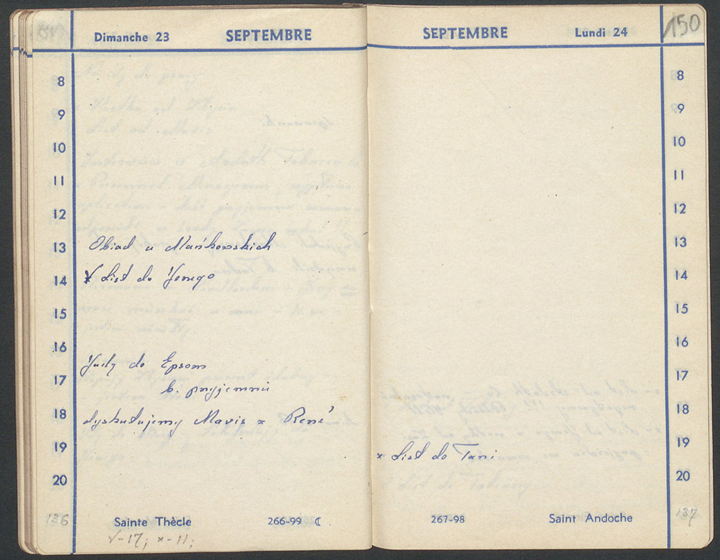 Dimanche 23 SEPTEMBRE
8
9
10
11
12
13 Obiad u Mańkowskich
14 List do Jerzego
15
16
17 Jadę do Epsom
b. przyjemnie
18 dyskutujemy Mavis x René
19
20
136 Sainte Thècle 266-99 ☾
√-17; x-11;
SEPTEMBRE Lundi 24 150
8
9
10
11
12
13
14
15
16
17
18
19 x List do Tani
20
267-98 Saint Andoche 137